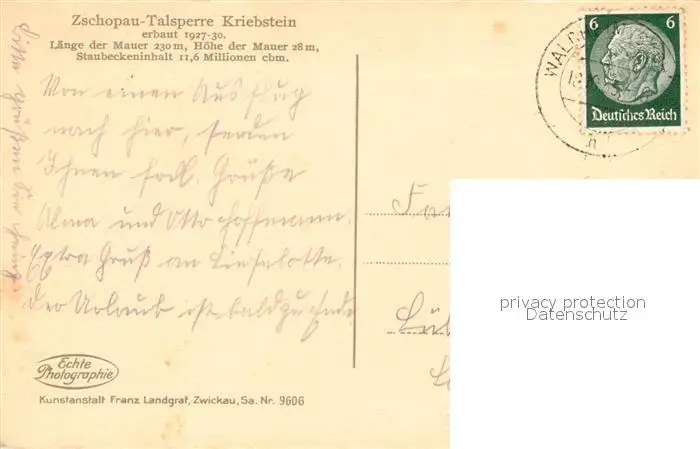 Zschopau-Talsperre Kriebstein
erbaut 1927-30.
Länge der Mauer 230 m, Höhe der Mauer 28 m,
Staubeckeninhalt 11,6 Millionen cbm.
Von einen Ausflug
nach hier, senden
Ihnen frdl. Grüße
Alma und Otto Hoffmann.
Extra Gruß an Lieselotte.
Der Urlaub ist bald zu Ende
Bitte grüßen Sie
Echte
Photographie
Kunstanstalt Franz Landgraf, Zwickau, Sa. Nr. 9606
6 6
Deutsches Reich
WALDHEIM
Fam
privacy protection
Datenschutz